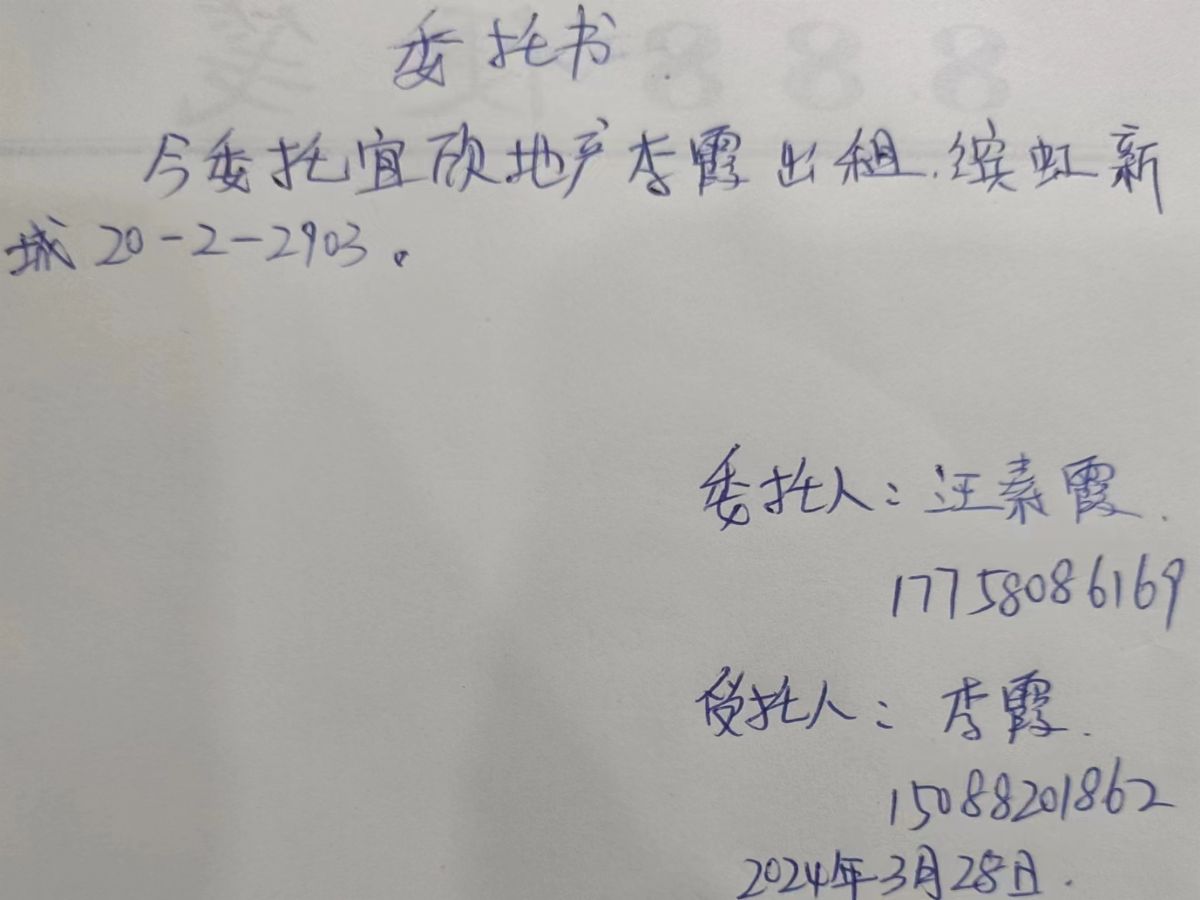 委托书
今委托宜欣地产李霞出租.缤虹新
城20-2-2903。
委托人：汪素霞.
17758086169
受托人：李霞.
15088201862
2024年3月28日.